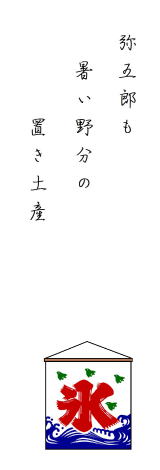 弥五郎も
暑い野分の
置き土産
氷